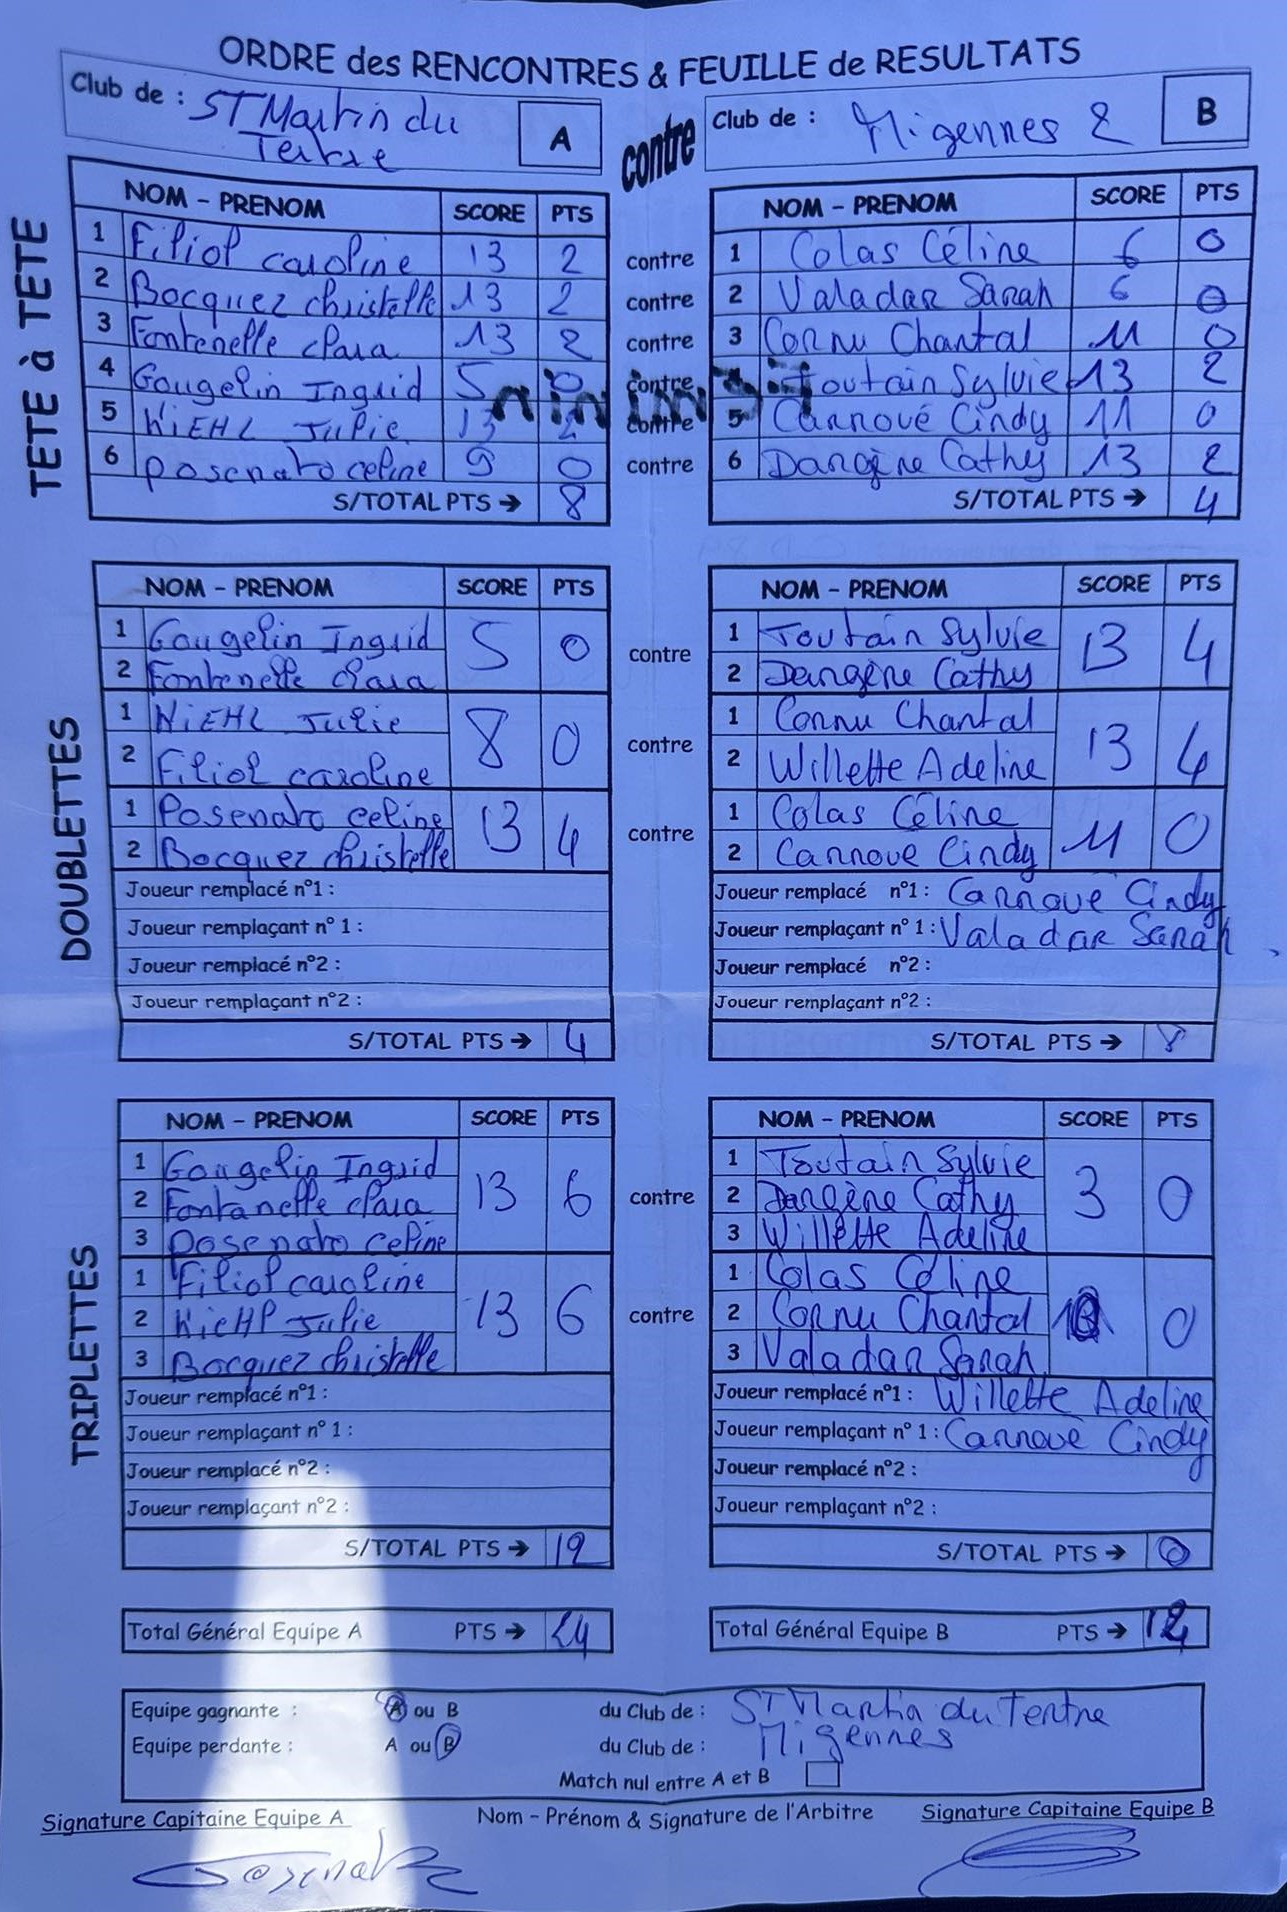 ORDRE des RENCONTRES & FEUILLE de RESULTATS
Club de : ST Martin du Tertre A contre Club de : Migennes 2 B
TETE à TETE
NOM - PRENOM SCORE PTS NOM - PRENOM SCORE PTS
1 Filiol caroline 13 2 contre 1 Colas Céline 6 0
2 Bocquez christelle 13 2 contre 2 Valadar Sarah 6 0
3 Fontenelle clara 13 2 contre 3 Cornu Chantal 11 0
4 Gougelin Ingrid 5 0 contre Toutain Sylvie 13 2
5 KiEHL Julie 13 2 contre 5 Cannoué Cindy 11 0
6 posenato celine 9 0 contre 6 Dangène Cathy 13 2
S/TOTAL PTS → 8 S/TOTAL PTS → 4
DOUBLETTES
NOM - PRENOM SCORE PTS NOM - PRENOM SCORE PTS
1 Gougelin Ingrid 5 0 contre 1 Toutain Sylvie 13 4
2 Fontenelle clara 2 Dangène Cathy
1 KiEHL Julie 8 0 contre 1 Cornu Chantal 13 4
2 Filiol caroline 2 Willette Adeline
1 Posenato celine 13 4 contre 1 Colas Céline 11 0
2 Bocquez christelle 2 Cannoue Cindy
Joueur remplacé n°1 : Joueur remplacé n°1 : Cannoue Cindy
Joueur remplaçant n° 1 : Joueur remplaçant n° 1 : Valadar Sarah
Joueur remplacé n°2 : Joueur remplacé n°2 :
Joueur remplaçant n°2 : Joueur remplaçant n°2 :
S/TOTAL PTS → 4 S/TOTAL PTS → 8
TRIPLETTES
NOM - PRENOM SCORE PTS NOM - PRENOM SCORE PTS
1 Gougelin Ingrid 13 6 contre 1 Toutain Sylvie 3 0
2 Fontanelle clara 2 Dangène Cathy
3 posenato celine 3 Willette Adeline
1 Filiol caroline 13 6 contre 1 Colas Céline 0
2 KieHl Julie 2 Cornu Chantal
3 Bocquez christelle 3 Valadar Sarah
Joueur remplacé n°1 : Joueur remplacé n°1 : Willette Adeline
Joueur remplaçant n° 1 : Joueur remplaçant n° 1 : Cannoue Cindy
Joueur remplacé n°2 : Joueur remplacé n°2 :
Joueur remplaçant n°2 : Joueur remplaçant n°2 :
S/TOTAL PTS → 12 S/TOTAL PTS → 0
Total Général Equipe A PTS → 24 Total Général Equipe B PTS → 12
Equipe gagnante : A ou B du Club de : ST Martin du Tertre
Equipe perdante : A ou B du Club de : Migennes
Match nul entre A et B
Signature Capitaine Equipe A Nom - Prénom & Signature de l'Arbitre Signature Capitaine Equipe B